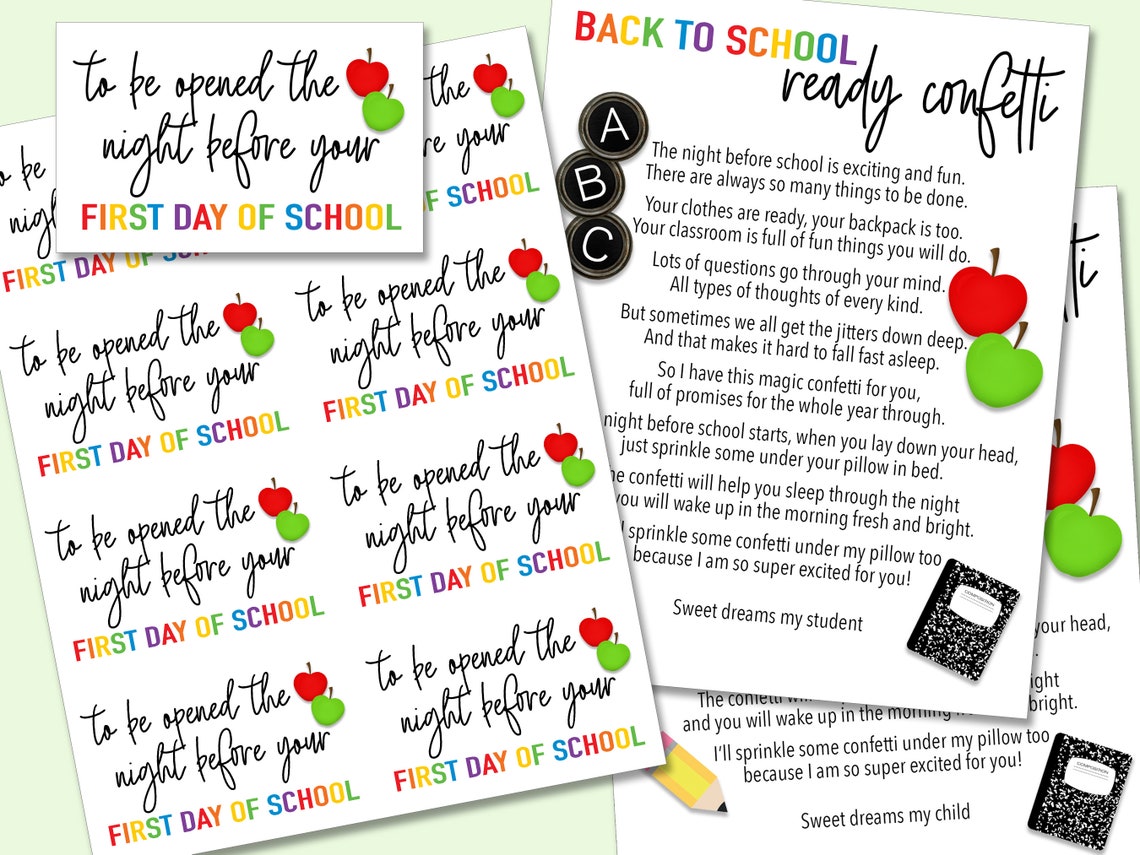 to be opened the
night before your
FIRST DAY OF SCHOOL
be
FIRST DAY OF
the
your
SCHOOL
to be opened the
night before your
FIRST DAY OF SCHOOL
to be opened the
night before your
FIRST DAY OF SCHOOL
to be opened the
night before your
FIRST DAY OF SCHOOL
to be opened the
night before your
FIRST DAY OF SCHOOL
to be opened the
night before your
FIRST DAY OF SCHOOL
to be opened the
night before your
FIRST DAY OF SCHOOL
BACK TO SCHOOL
ready confetti
A
B
C
The night before school is exciting and fun.
There are always so many things to be done.
Your clothes are ready, your backpack is too.
Your classroom is full of fun things you will do.
Lots of questions go through your mind.
All types of thoughts of every kind.
But sometimes we all get the jitters down deep.
And that makes it hard to fall fast asleep.
So I have this magic confetti for you,
full of promises for the whole year through.
night before school starts, when you lay down your head,
just sprinkle some under your pillow in bed.
confetti will help you sleep through the night
you will wake up in the morning fresh and bright.
sprinkle some confetti under my pillow too
because I am so super excited for you!
Sweet dreams my student
COMPOSITION
your head,
The confetti
and you will wake up in the morning bright.
I'll sprinkle some confetti under my pillow too
because I am so super excited for you!
Sweet dreams my child
COMPOSITION